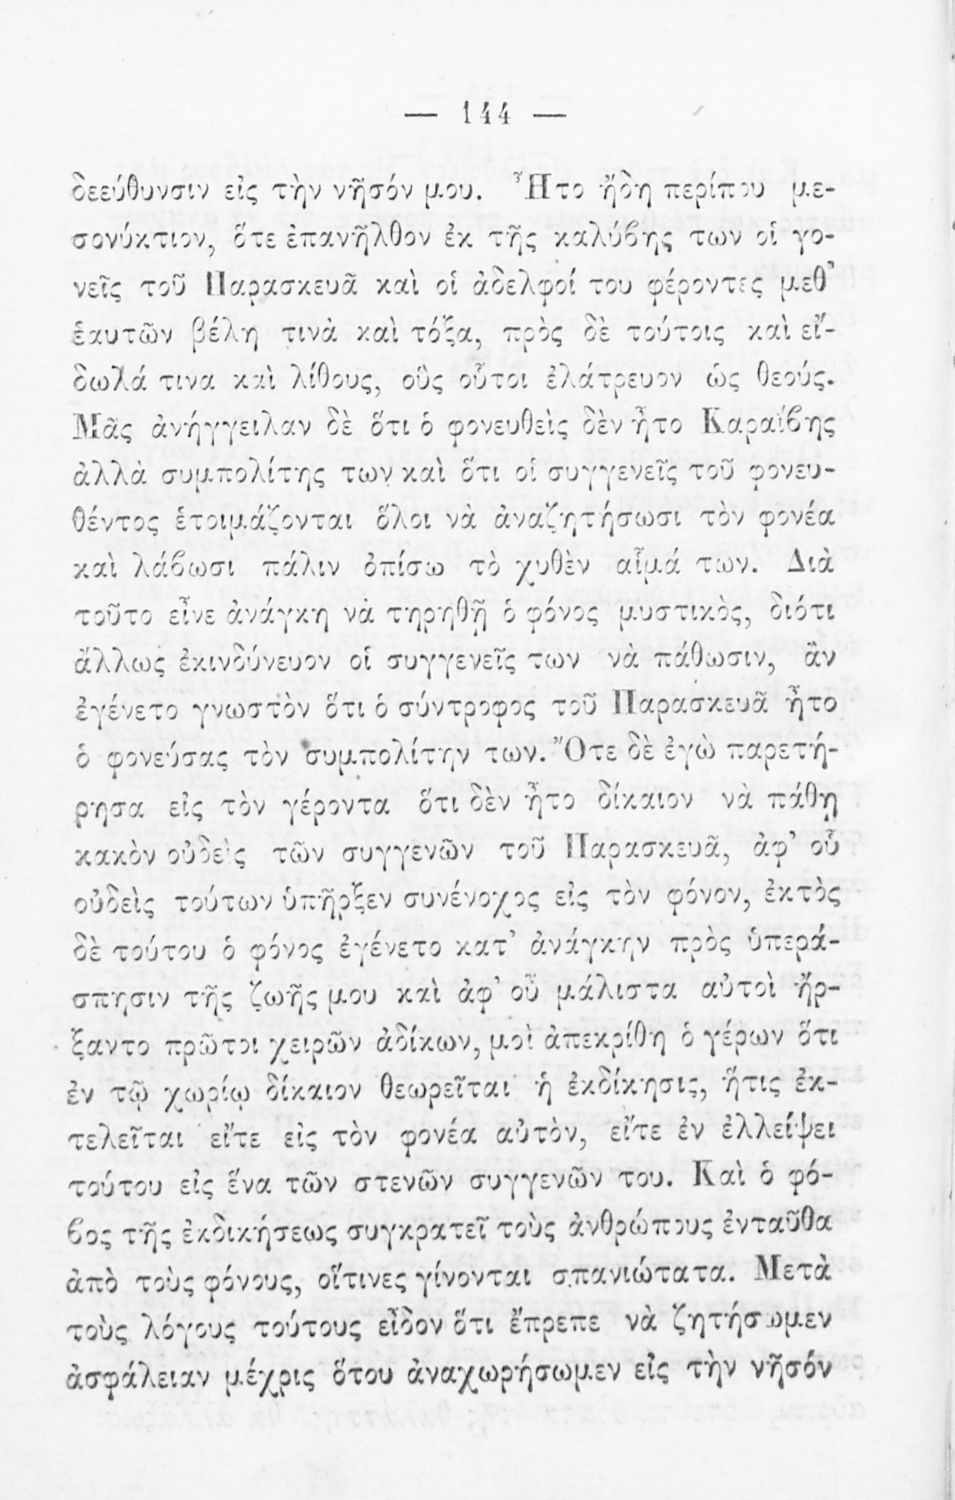 — 144 —
δεεύθυνσιν εἰς τὴν νῆσόν μου. Ἦτο ἤδη περίπου με-
σονύκτιον, ὅτε ἐπανῆλθον ἐκ τῆς καλύβης των οἱ γο-
νεῖς τοῦ Παρασκευᾶ καὶ οἱ ἀδελφοί του φέροντες μεθ’
ἑαυτῶν βέλη τινὰ καὶ τόξα, πρὸς δὲ τούτοις καὶ εἴ-
δωλά τινα καὶ λίθους, οὓς οὗτοι ἐλάτρευον ὡς θεούς.
Μᾶς ἀνήγγειλαν δὲ ὅτι ὁ φονευθεὶς δὲν ἦτο Καραΐβης
ἀλλὰ συμπολίτης των καὶ ὅτι οἱ συγγενεῖς τοῦ φονευ-
θέντος ἑτοιμάζονται ὅλοι νὰ ἀναζητήσωσι τὸν φονέα
καὶ λάβωσι πάλιν ὀπίσω τὸ χυθὲν αἷμά των. Διὰ
τοῦτο εἶνε ἀνάγκη νὰ τηρηθῇ ὁ φόνος μυστικὸς, διότι
ἄλλως ἐκινδύνευον οἱ συγγενεῖς των νὰ πάθωσιν, ἂν
ἐγένετο γνωστὸν ὅτι ὁ σύντροφος τοῦ Παρασκευᾶ ἦτο
ὁ φονεύσας τὸν συμπολίτην των. Ὅτε δὲ ἐγὼ παρετή-
ρησα εἰς τὸν γέροντα ὅτι δὲν ἦτο δίκαιον νὰ πάθῃ
κακὸν οὐδεὶς τῶν συγγενῶν τοῦ Παρασκευᾶ, ἀφ’ οὗ
οὐδεὶς τούτων ὑπῆρξεν συνένοχος εἰς τὸν φόνον, ἐκτὸς
δὲ τούτου ὁ φόνος ἐγένετο κατ’ ἀνάγκην πρὸς ὑπερά-
σπησιν τῆς ζωῆς μου καὶ ἀφ’ οὗ μάλιστα αὐτοὶ ἤρ-
ξαντο πρῶτοι χειρῶν ἀδίκων, μοὶ ἀπεκρίθη ὁ γέρων ὅτι
ἐν τῷ χωρίῳ δίκαιον θεωρεῖται ἡ ἐκδίκησις, ἥτις ἐκ-
τελεῖται εἴτε εἰς τὸν φονέα αὐτὸν, εἴτε ἐν ἐλλείψει
τούτου εἰς ἕνα τῶν στενῶν συγγενῶν του. Καὶ ὁ φό-
βος τῆς ἐκδικήσεως συγκρατεῖ τοὺς ἀνθρώπους ἐνταῦθα
ἀπὸ τοὺς φόνους, οἵτινες γίνονται σπανιώτατα. Μετὰ
τοὺς λόγους τούτους εἶδον ὅτι ἔπρεπε νὰ ζητήσωμεν
ἀσφάλειαν μέχρις ὅτου ἀναχωρήσωμεν εἰς τὴν νῆσόν